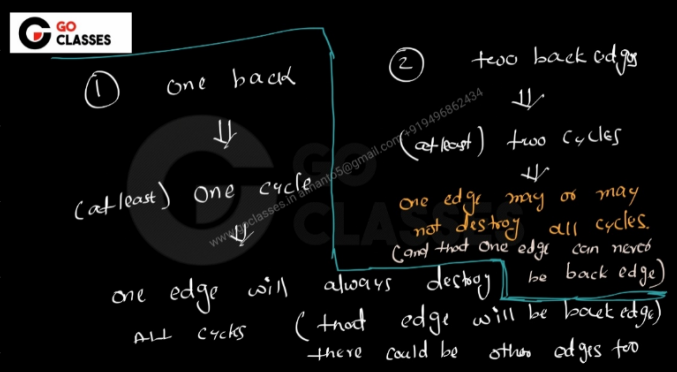 GO
CLASSES
① one back
⇓
(at least) one cycle
⇓
one edge will always destroy
ALL cycles (that edge will be back edge)
there could be other edges too
② two back edges
⇓
(at least) two cycles
⇓
one edge may or may
not destroy all cycles.
(and that one edge can never
be back edge)
GO
CLASSES